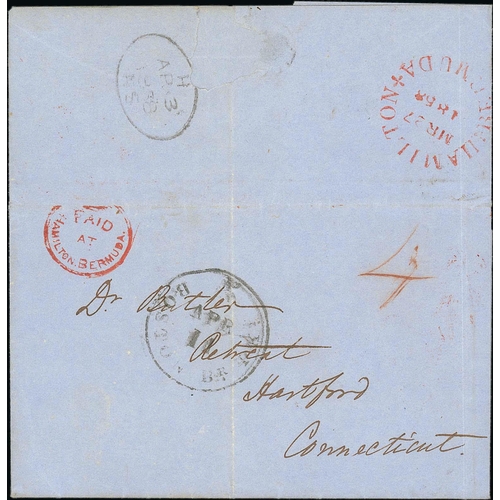 H
AP 3
1858
N S
HAMILTON BERMUDA
MR 27
1858
PAID
AT
HAMILTON. BERMUDA.
4
BOSTON
APR
BR. PKT
Dr. Butler
Retreat
Hartford
Connecticut.